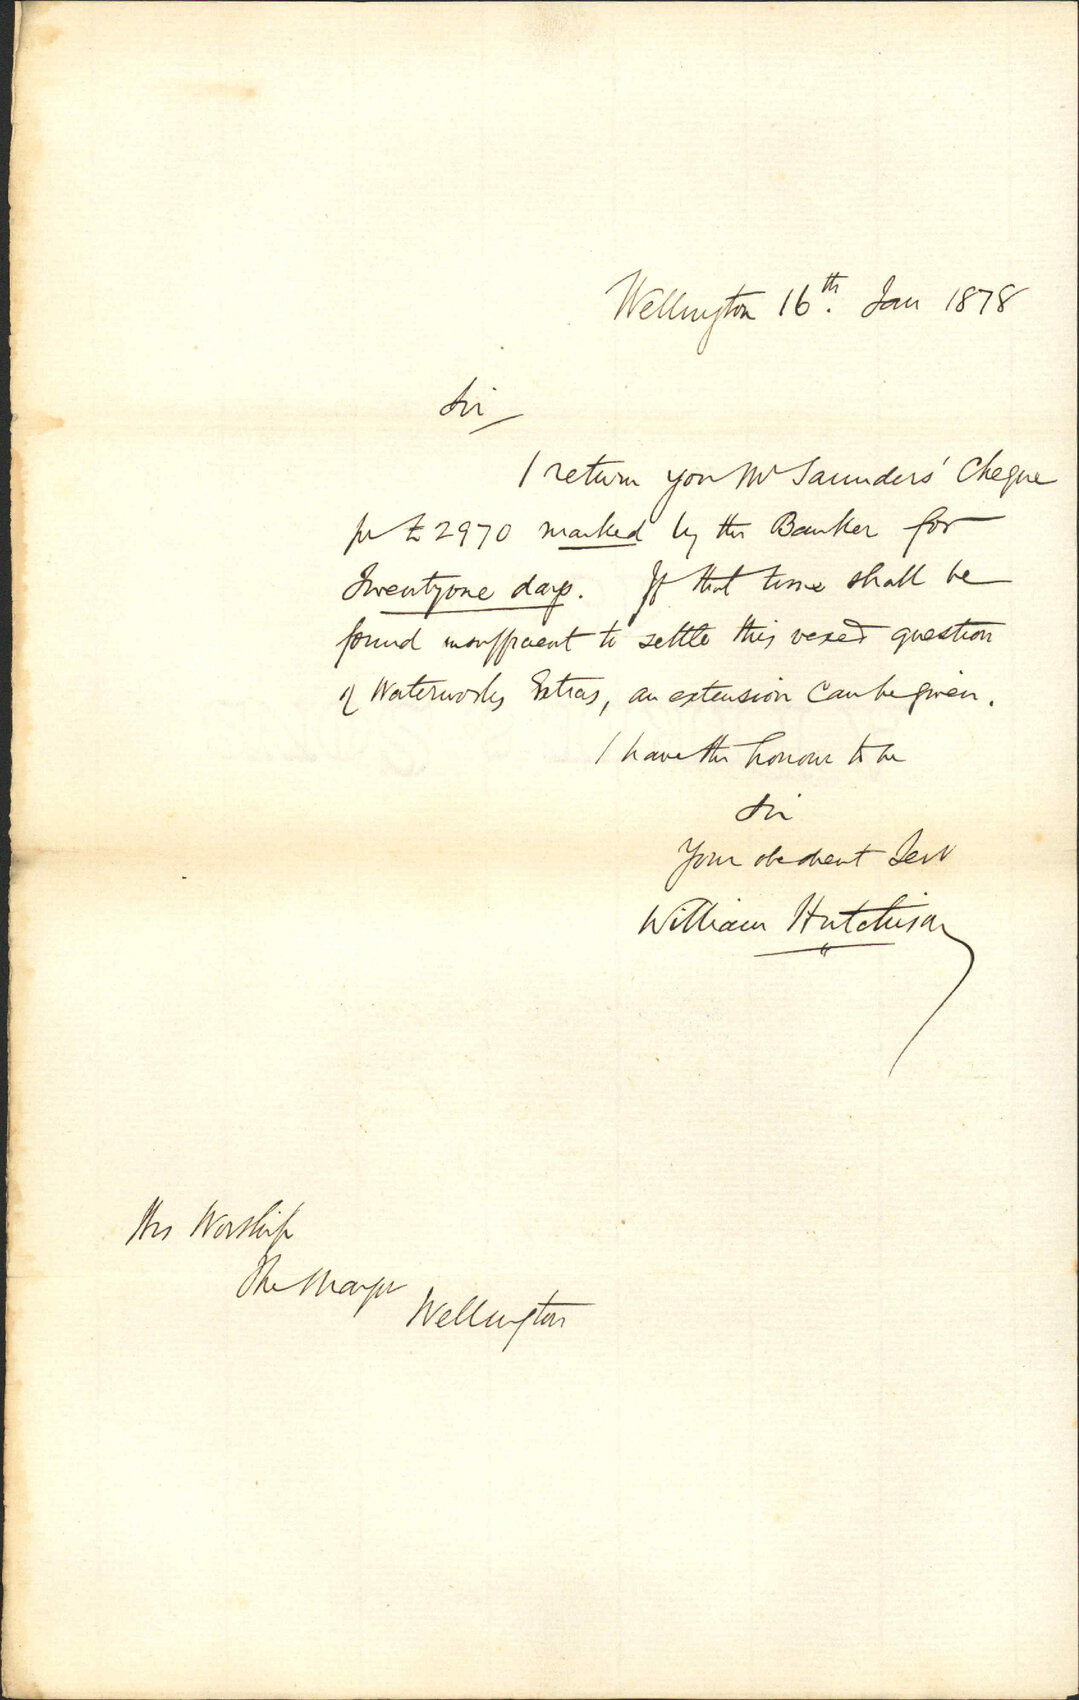 Wellington 16th. Jan 1878
Sir
I return you Mr Saunders' Cheque
for £2970 marked by the Banker for
Twentyone days. If that time shall be
found insufficient to settle this vexed question
of Waterworks Extras, an extension can be given.
I have the honour to be
Sir
Your obedient Servt
William Hutchison
His Worship
The Mayor
Wellington